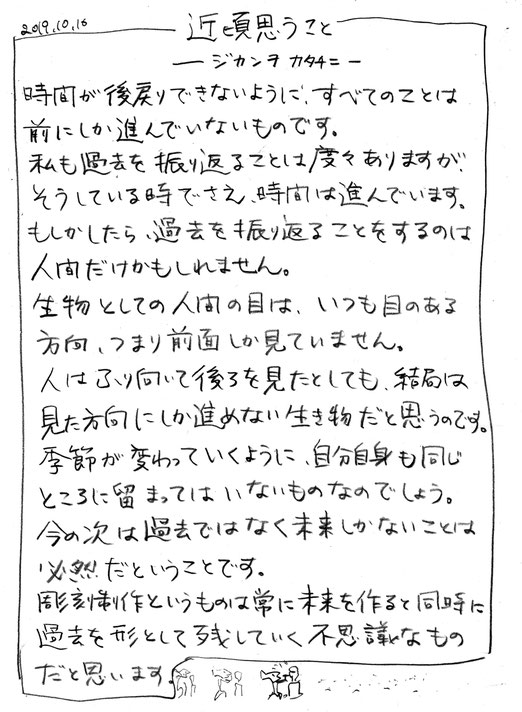 2019.10.18
近頃思うこと
ー ジカンヲ カタチニ ー
時間が後戻りできないように、すべてのことは
前にしか進んでいないものです。
私も過去を振り返ることは度々ありますが、
そうしている時でさえ、時間は進んでいます。
もしかしたら、過去を振り返ることをするのは
人間だけかもしれません。
生物としての人間の目は、いつも目のある
方向、つまり前面しか見ていません。
人はふり向いて後ろを見たとしても、結局は
見た方向にしか進めない生き物だと思うのです。
季節が変わっていくように、自分自身も同じ
ところに留まってはいないものなのでしょう。
今の次は過去ではなく未来しかないことは
必然だということです。
彫刻制作というものは常に未来を作ると同時に
過去を形として残していく不思議なもの
だと思います。